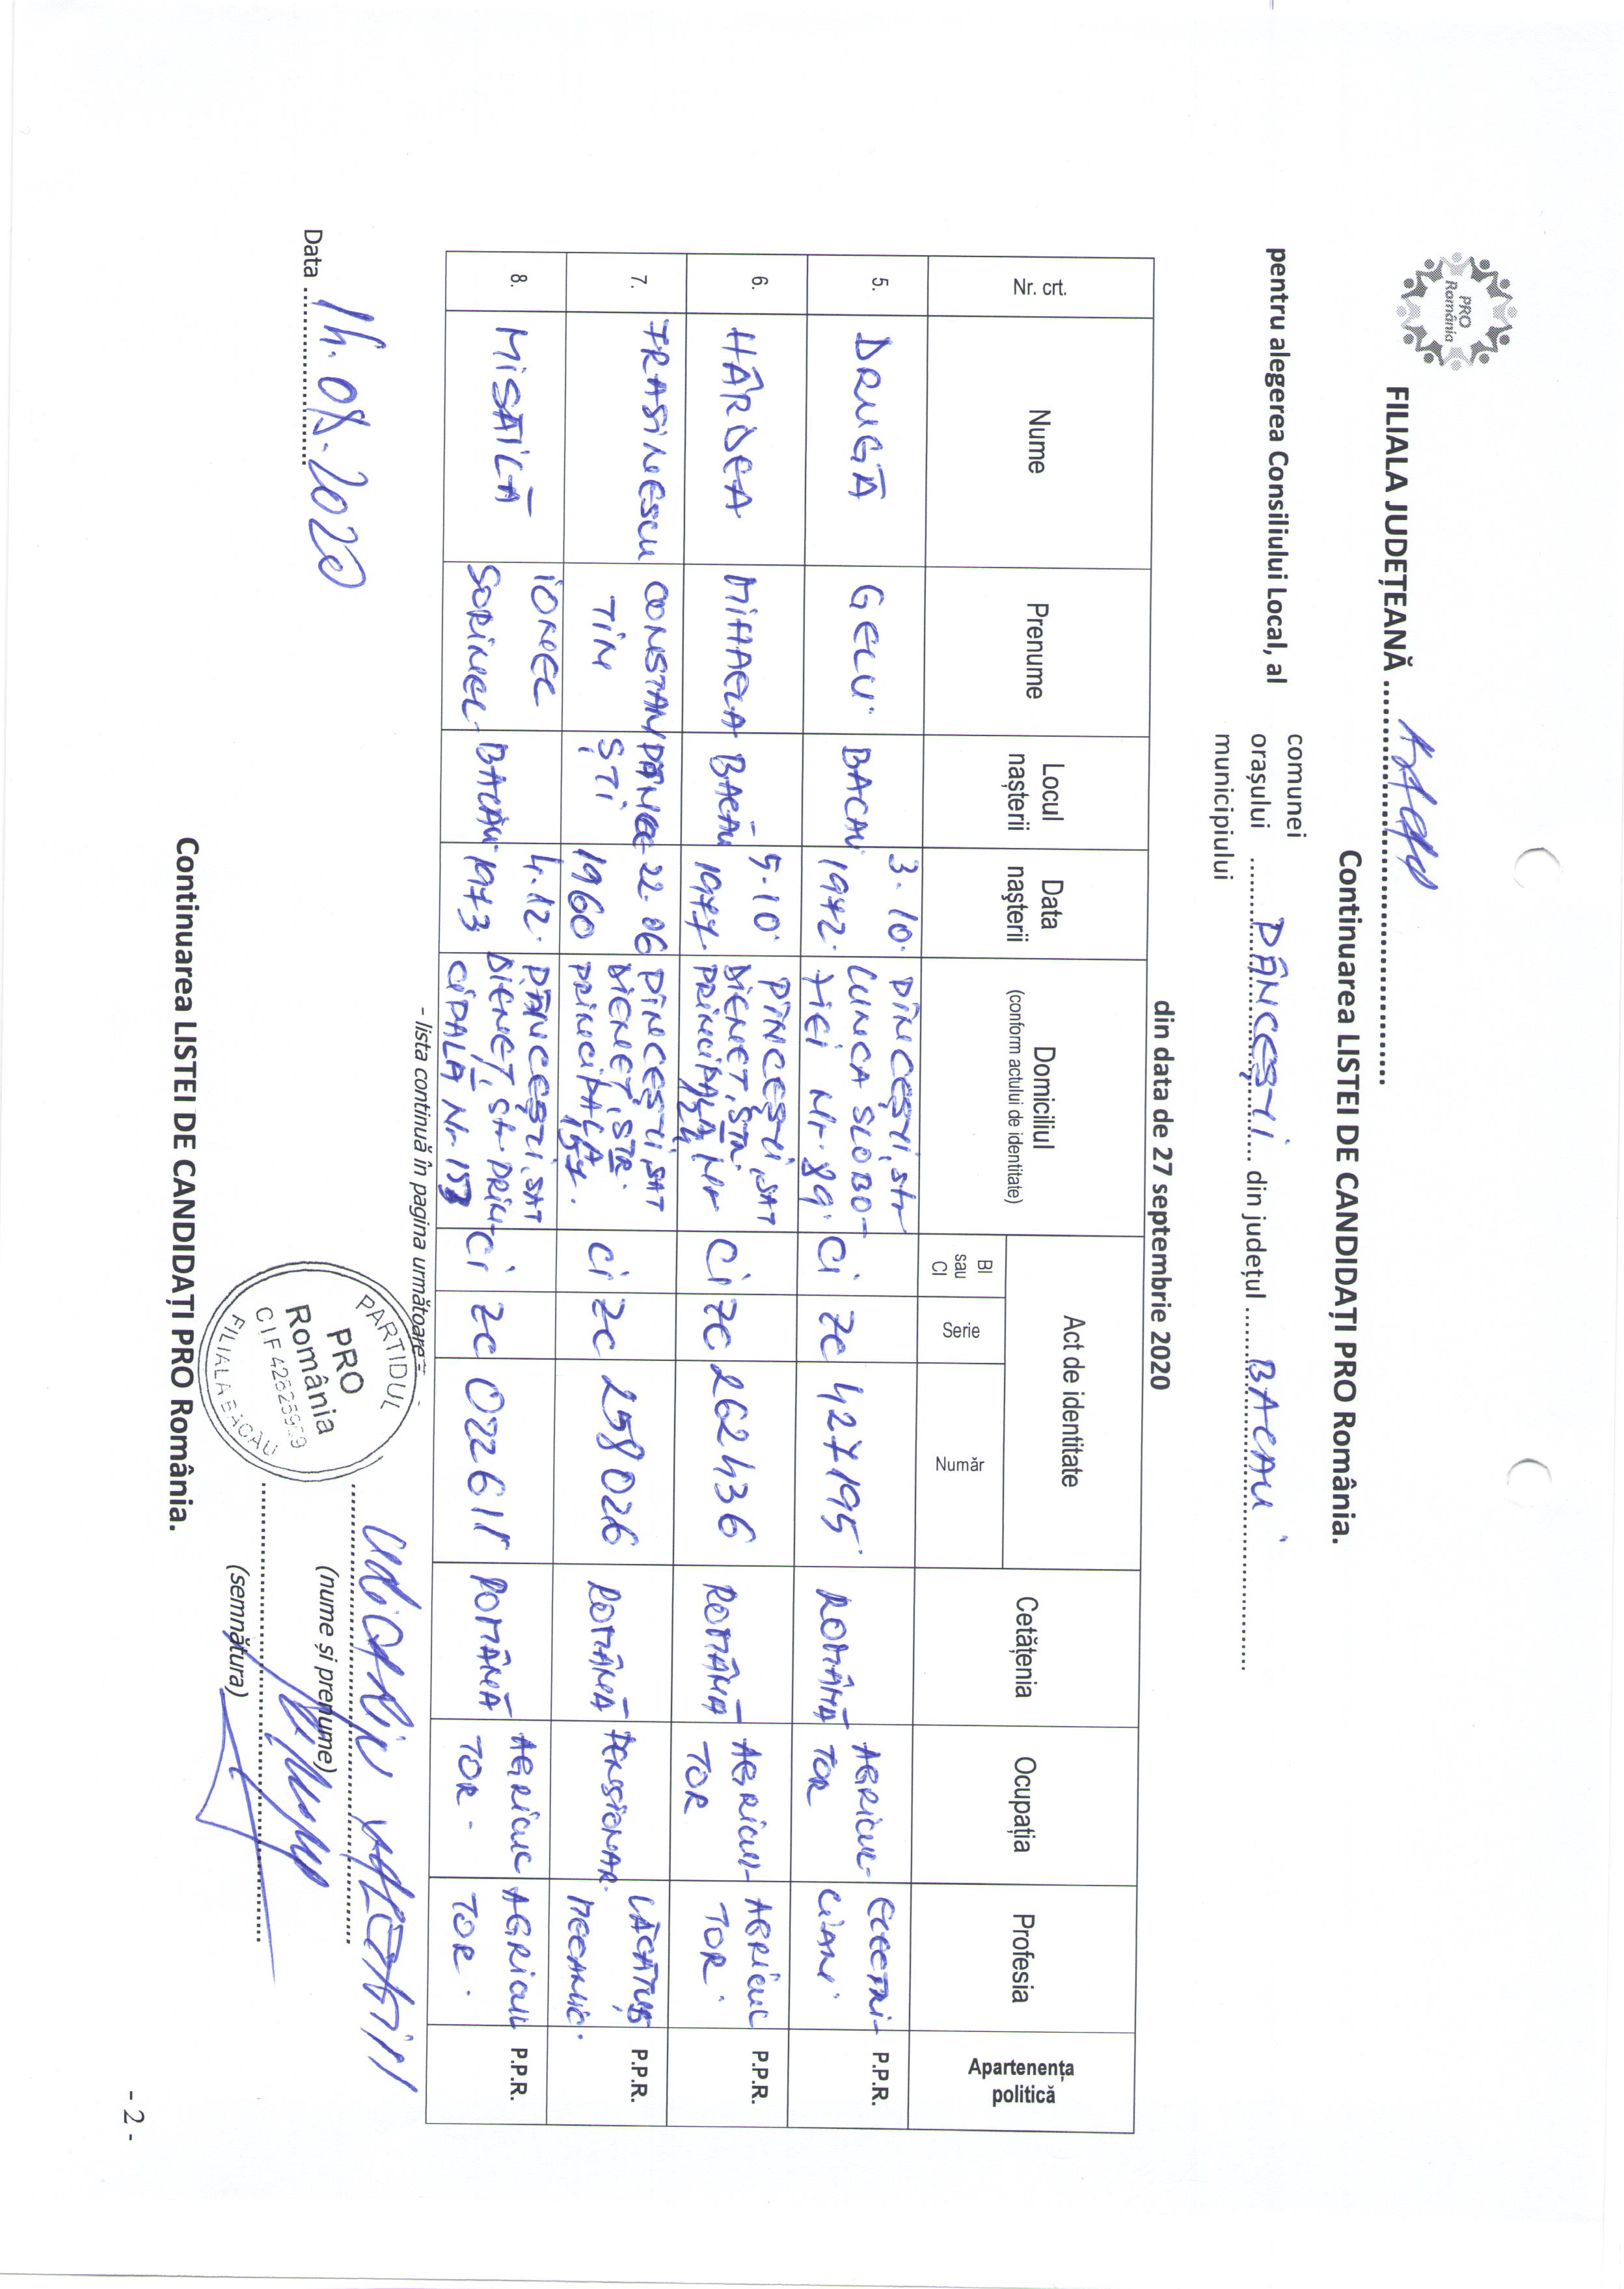 PRO
România
FILIALA JUDEȚEANĂ ........................................
Continuarea LISTEI DE CANDIDAȚI PRO România.
pentru alegerea Consiliului Local, al
comunei
orașului ........ PÂNCEȘTI ........ din județul ........ BACAU ........
municipiului
din data de 27 septembrie 2020
Nr. crt. Nume Prenume Locul nașterii Data nașterii Domiciliul (conform actului de identitate) Act de identitate BI sau CI Serie Număr Cetățenia Ocupația Profesia Apartenența politică
5. DRUGĂ GELU BACAU 3.10. 1972. PÎNCEȘTI, str LUNCA SLOBO- ZIEI Nr. 89. Ci ZC 427195. ROMÂNĂ AGRICUL- TOR ELECTRI- CIAN. P.P.R.
6. HÂRDEA MIHAELA BACĂU 5.10. 1977. PÎNCEȘTI, SAT DIENEȚ, STR. PRINCIPALĂ Nr Ci ZC 262436 ROMÂNĂ AGRICUL- TOR AGRICUL TOR. P.P.R.
7. FRASINESCU CONSTAN TIN PÂNCE ȘTI 22.06 1960 PÎNCEȘTI, SAT DIENEȚ, STR. PRINCIPALĂ 157. Ci ZC 258026 ROMÂNĂ PENSIONAR. LĂCĂTUȘ MECANIC. P.P.R.
8. MISĂILĂ IONEL SORINEL BACĂU 4.12. 1973 PÎNCEȘTI, SAT DIENEȚ, str. PRIN- CIPALĂ Nr. 153 Ci ZC 022611 ROMÂNĂ AGRICUL TOR. AGRICUL TOR. P.P.R.
- lista continuă în pagina următoare -
Data 14.08.2020
PARTIDUL
PRO
România
CIF 42625959
FILIALA BACĂU
(nume și prenume)
(semnătura)
Continuarea LISTEI DE CANDIDAȚI PRO România.
- 2 -